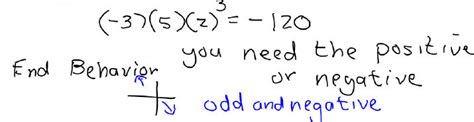 (-3)(5)(2)³ = -120
you need the positive
End Behavior or negative
odd and negative